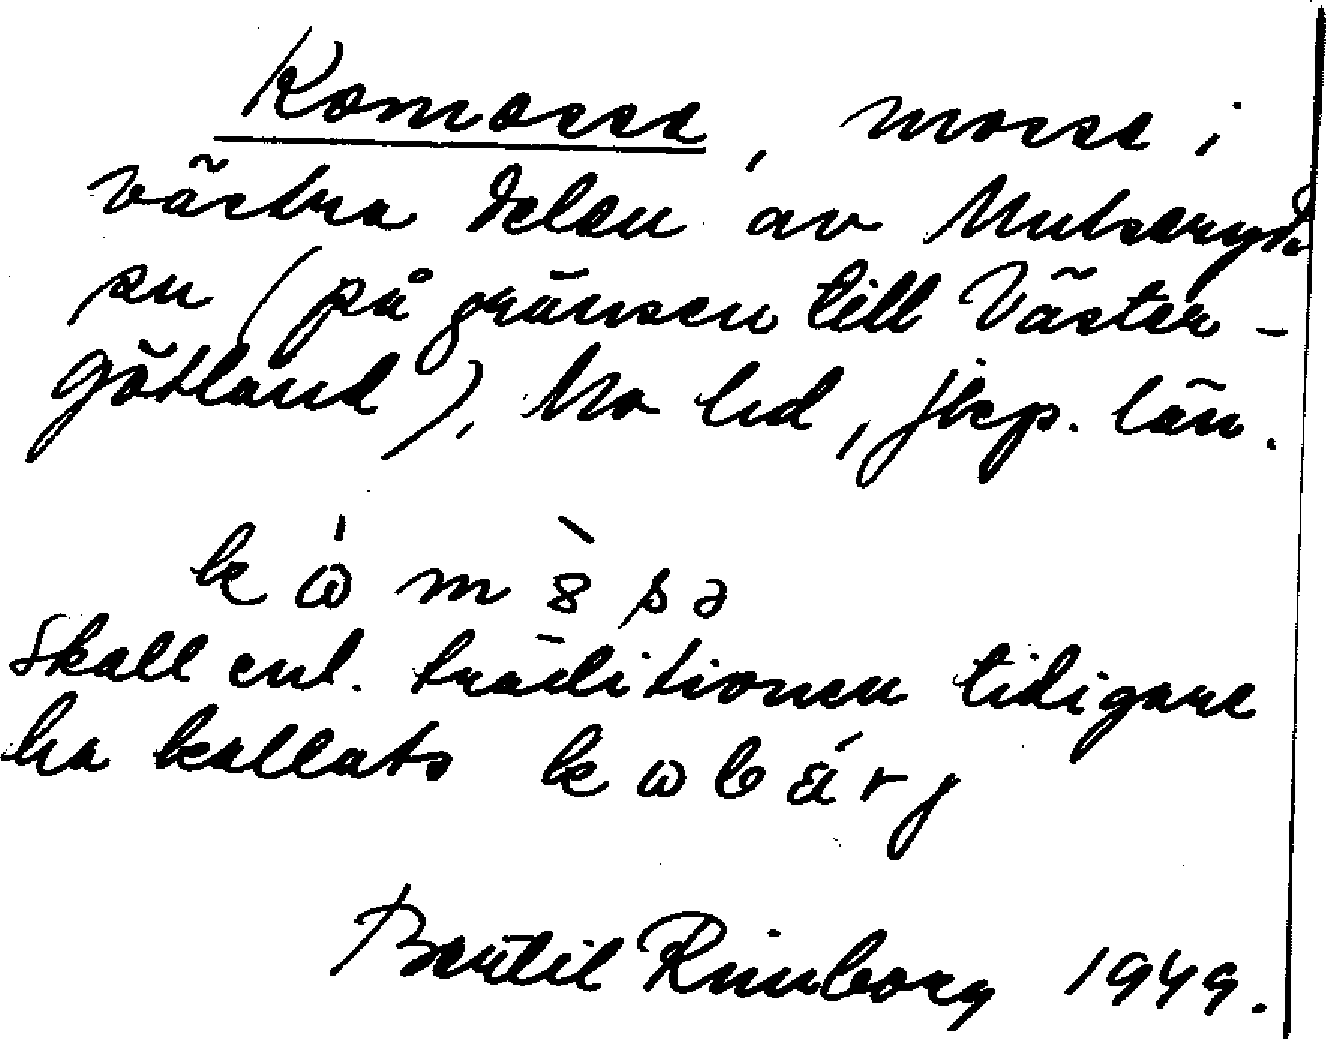 Komosse, mosse i
västra delen av Mulseryds
sn (på gränsen till Väster-
götland), Mo hd, jkp. län.
kὼmò̈sə
Skall enl. traditionen tidigare
ha kallats kωbárj
Bertil Rimborg 1949.